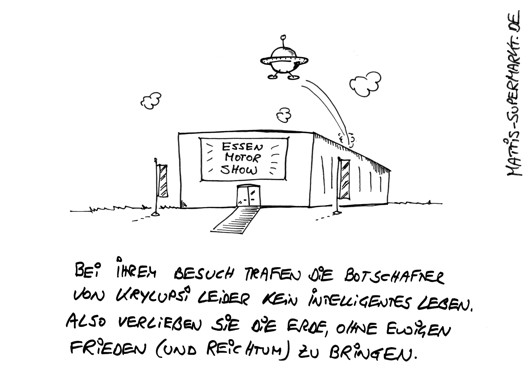 MATTIS-SUPERMARKT.DE
ESSEN
MOTOR
SHOW
BEI IHREM BESUCH TRAFEN DIE BOTSCHAFTER
VON KRYLUPSI LEIDER KEIN INTELLIGENTES LEBEN.
ALSO VERLIEßEN SIE DIE ERDE, OHNE EWIGEN
FRIEDEN (UND REICHTUM) ZU BRINGEN.